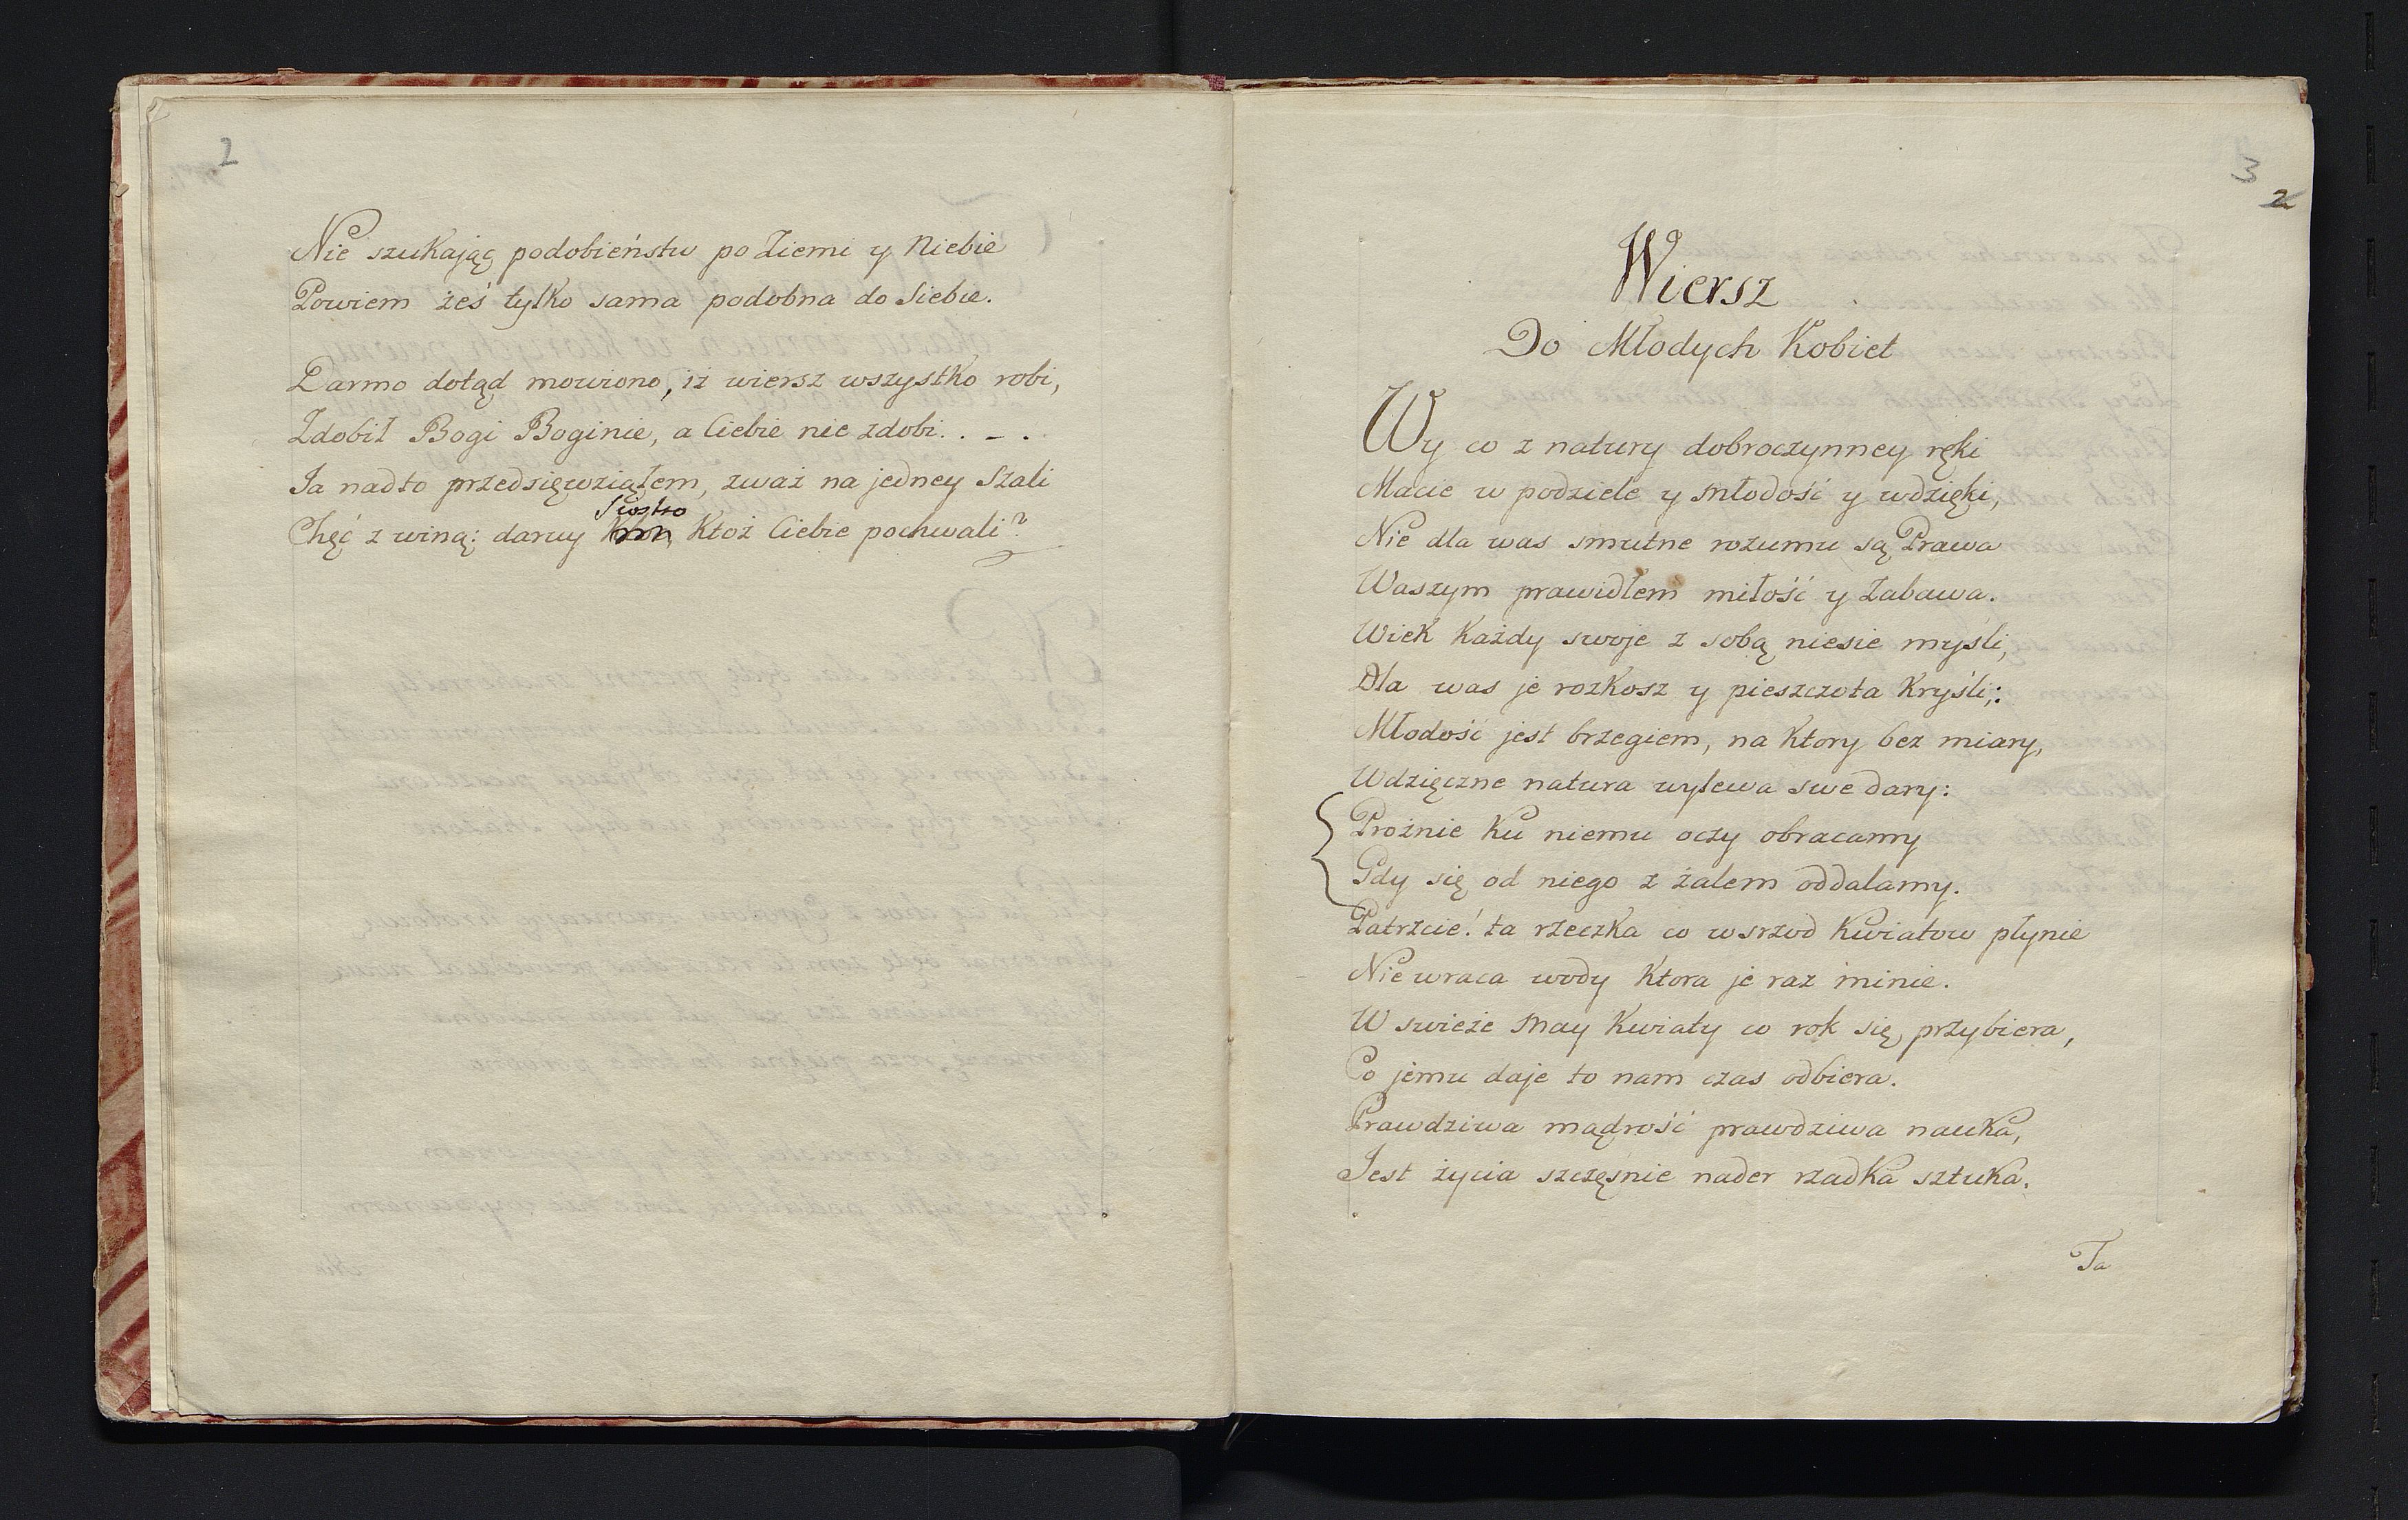 2
Nie szukając podobieństw po Ziemi y Niebie
Powiem żeś tylko sama podobna do Siebie.
Darmo dotąd mowiono, iż wiersz wszystko robi,
Zdobił Bogi Boginie, a Ciebie nie zdobi. . – .
Ja nadto przedsięwziąłem, zważ na jedney Szali
Siostro
Chęć z winą: daruy Ktoż Ciebie pochwali?
3
2
Wiersz
Do Młodych Kobiet
Wy co z natury dobroczynney ręki
Macie w podziele y młodość y wdzięki,
Nie dla was smutne rozumu są Prawa
Waszym prawidłem miłość y Zabawa.
Wiek każdy swoje z sobą niesie myśli,
Dla was je rozkosz y pieszczota kryśli;:
Młodość jest brzegiem, na ktory bez miary,
Wdzięczne natura wylewa swe dary:
Proźnie ku niemu oczy obracamy
Gdy się od niego z żalem oddalamy.
Patrzcie! ta rzeczka co wsrzod kwiatow płynie
Nie wraca wody ktora je raz minie.
W swieże May kwiaty co rok się przybiera,
Co jemu daje to nam czas odbiera.
Prawdziwa mądrość prawdziwa nauka,
Jest życia szczęsnie nader rzadka sztuka.
Ta